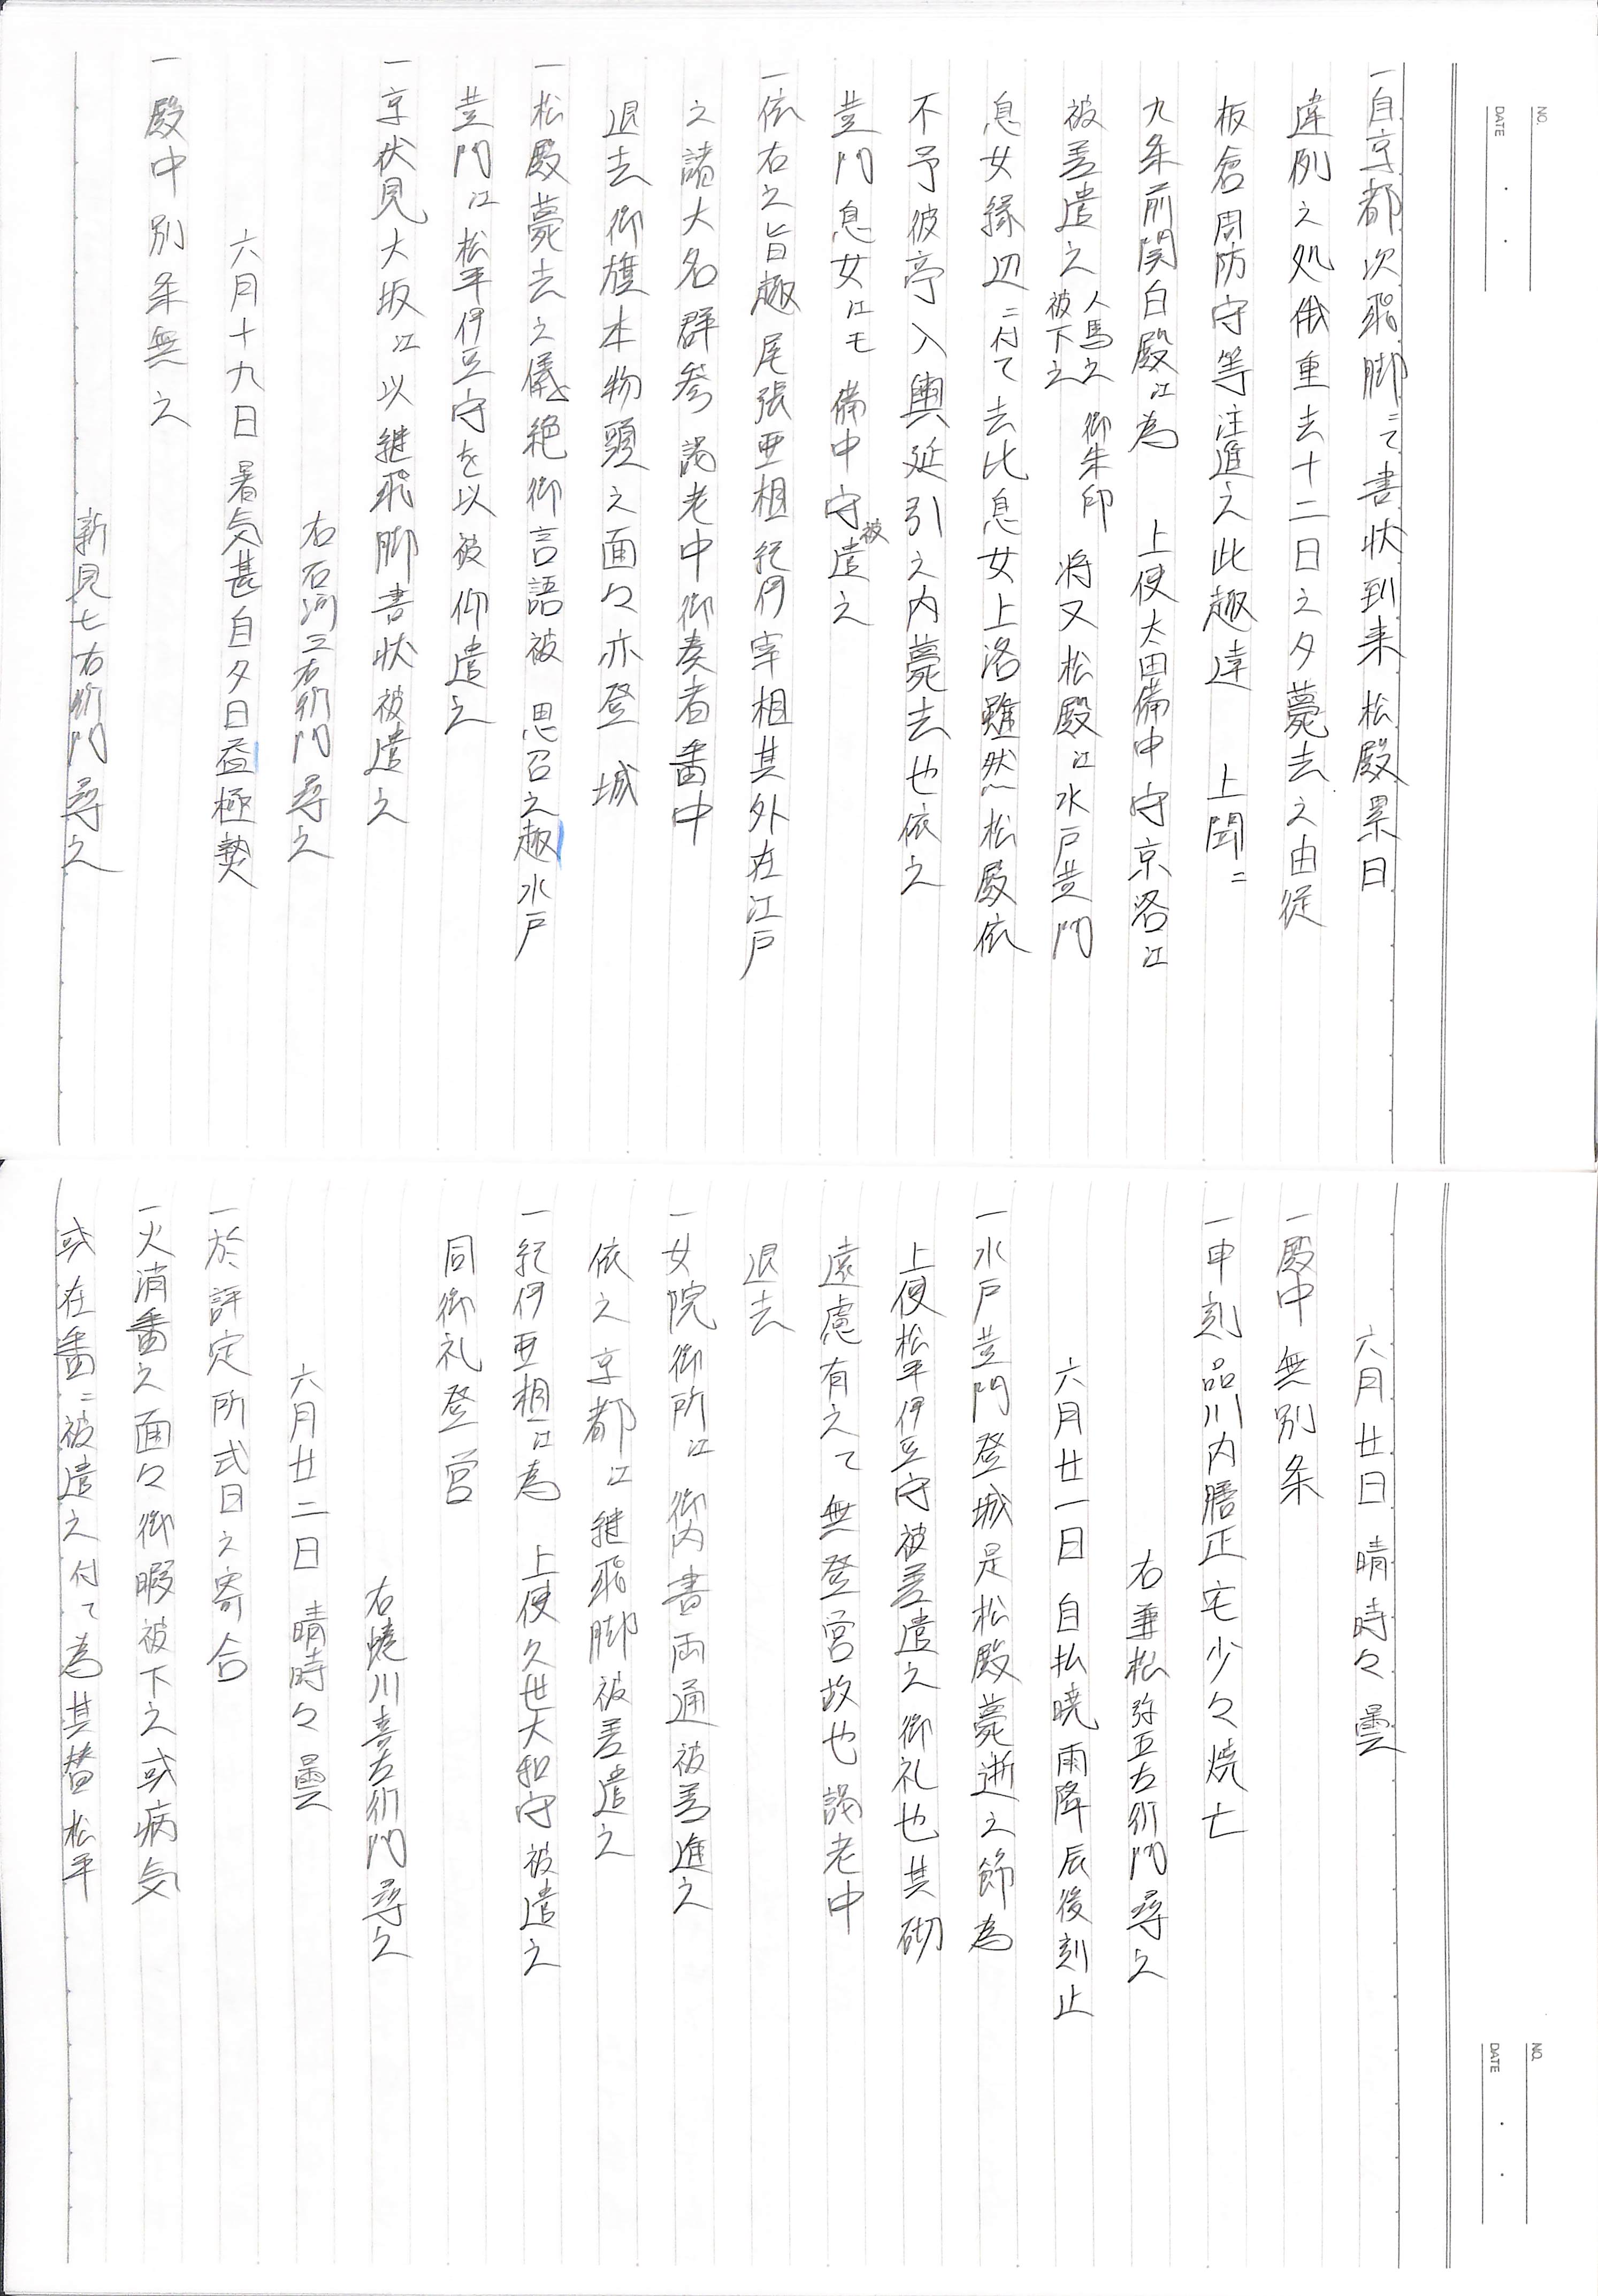 NO.
DATE
一自京都次飛脚ニて書状到来松殿累日
違例之処俄重去十二日之夕薨去之由従
板倉周防守等注進之此趣達　上聞ニ
九条前関白殿江為　上使太田備中守京洛江
被差遣之人馬之被下之　御朱印　将又松殿江水戸黄門
息女縁辺ニ付て去比息女上洛雖然松殿依
不予彼亭入輿延引之内薨去也依之
黄門息女江モ備中守被遣之
一依右之旨趣尾張亜相紀伊宰相其外在江戸
之諸大名群参謁老中御奏者番中
退去御旗本物頭之面々亦登　城
一松殿薨去之儀絶御言語被　思召之趣水戸
黄門江松平伊豆守を以被仰遣之
一京伏見大坂江以継飛脚書状被遣之
右石河三右衛門尋之
六月十九日　暑気甚自夕日益極熱
一殿中別条無之
新見七右衛門尋之
NO.
DATE
六月廿日　晴時々曇
一殿中無別条
一申刻品川内膳正宅少々焼亡
右兼松弥五左衛門尋之
六月廿一日　自払暁雨降辰後刻止
一水戸黄門登城是松殿薨逝之節為
上使松平伊豆守被差遣之御礼也其砌
遠慮有之て無登営故也謁老中
退去
一女院御所江御内書両通被差進之
依之京都江継飛脚被差遣之
一紀伊亜相江為　上使久世大和守被遣之
同御礼登営
右蜷川喜左衛門尋之
六月廿二日　晴時々曇
一於評定所式日之寄合
一火消番之面々御暇被下之或病気
或在番ニ被遣之付て為其替松平